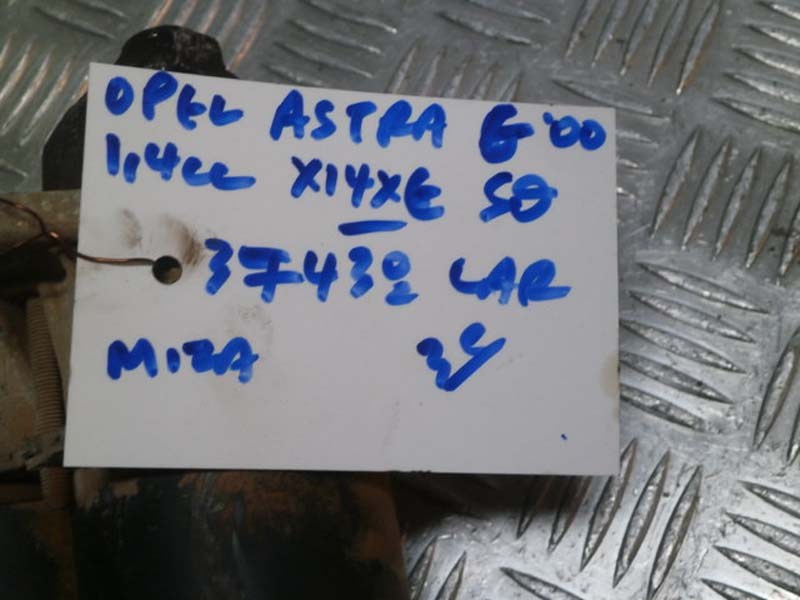 OPEL ASTRA G'00
1,4cc X14XE 5Θ
37432 LAR
MIZA